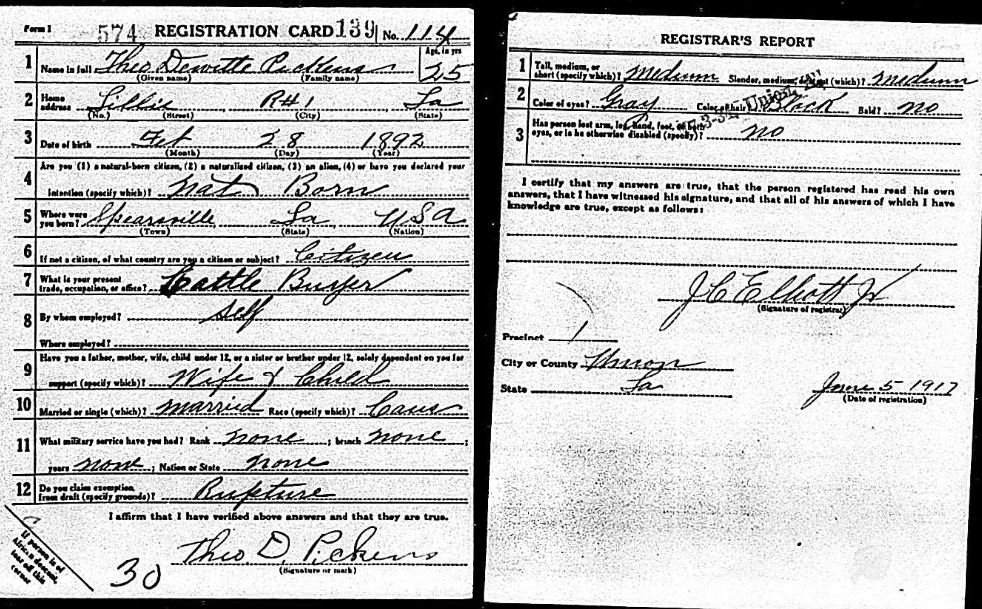 Form 1 574 REGISTRATION CARD 139 No. 114
1 Name in full Theo Dewitte Pickens Age, in yrs 25
(Given name) (Family name)
2 Home address Lillie R#1 La
(No.) (Street) (City) (State)
3 Date of birth Feb 28 1892
(Month) (Day) (Year)
4 Are you (1) a natural-born citizen, (2) a naturalized citizen, (3) an alien, (4) or have you declared your
intention (specify which)? Nat Born
5 Where were you born? Spearsville La USA
(Town) (State) (Nation)
6 If not a citizen, of what country are you a citizen or subject? Citizen
7 What is your present trade, occupation, or office? Cattle Buyer
8 By whom employed? Self
Where employed?
9 Have you a father, mother, wife, child under 12, or a sister or brother under 12, solely dependent on you for
support (specify which)? Wife & Child
10 Married or single (which)? Married Race (specify which)? Caus
11 What military service have you had? Rank none ; branch none ;
years none ; Nation or State none
12 Do you claim exemption from draft (specify grounds)? Rupture
I affirm that I have verified above answers and that they are true.
Theo. D. Pickens
(Signature or mark)
If person is of
African descent,
tear off this
corner
30
REGISTRAR'S REPORT
1 Tall, medium, or short (specify which)? Medium Slender, medium, or stout (which)? medium
2 Color of eyes? Gray Color of hair? Black Bald? No
3 Has person lost arm, leg, hand, foot, or both
eyes, or is he otherwise disabled (specify)? no
I certify that my answers are true, that the person registered has read his own
answers, that I have witnessed his signature, and that all of his answers of which I have
knowledge are true, except as follows:
J C Elliott Jr
(Signature of registrar)
Precinct 1
City or County Union
State La June 5 1917
(Date of registration)